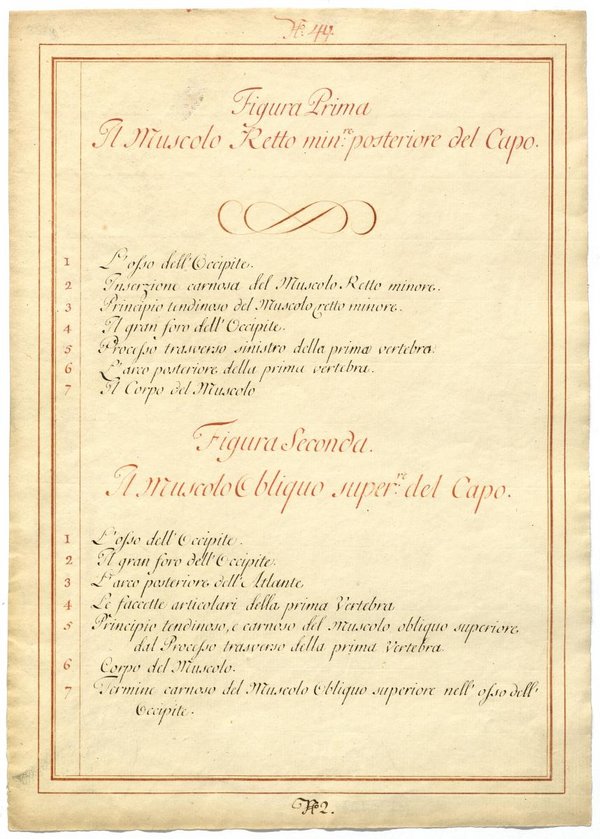 N.º 44.
Figura Prima
Il Muscolo Retto min.re posteriore del Capo.
1 L'osso dell'Occipite.
2 Inserzione carnosa del Muscolo Retto minore.
3 Principio tendinoso del Muscolo retto minore.
4 Il gran foro dell'Occipite.
5 Processo trasverso sinistro della prima vertebra.
6 L'arco posteriore della prima vertebra.
7 Il Corpo del Muscolo
Figura Seconda.
Il Muscolo Obliquo super.re del Capo.
1 L'osso dell'Occipite.
2 Il gran foro dell'Occipite.
3 L'arco posteriore dell'Atlante.
4 Le faccette articolari della prima Vertebra
5 Principio tendinoso, e carnoso del Muscolo obliquo superiore,
dal Processo trasverso della prima Vertebra.
6 Corpo del Muscolo.
7 Termine carnoso del Muscolo Obliquo superiore nell'osso dell'
Occipite.
No 2.